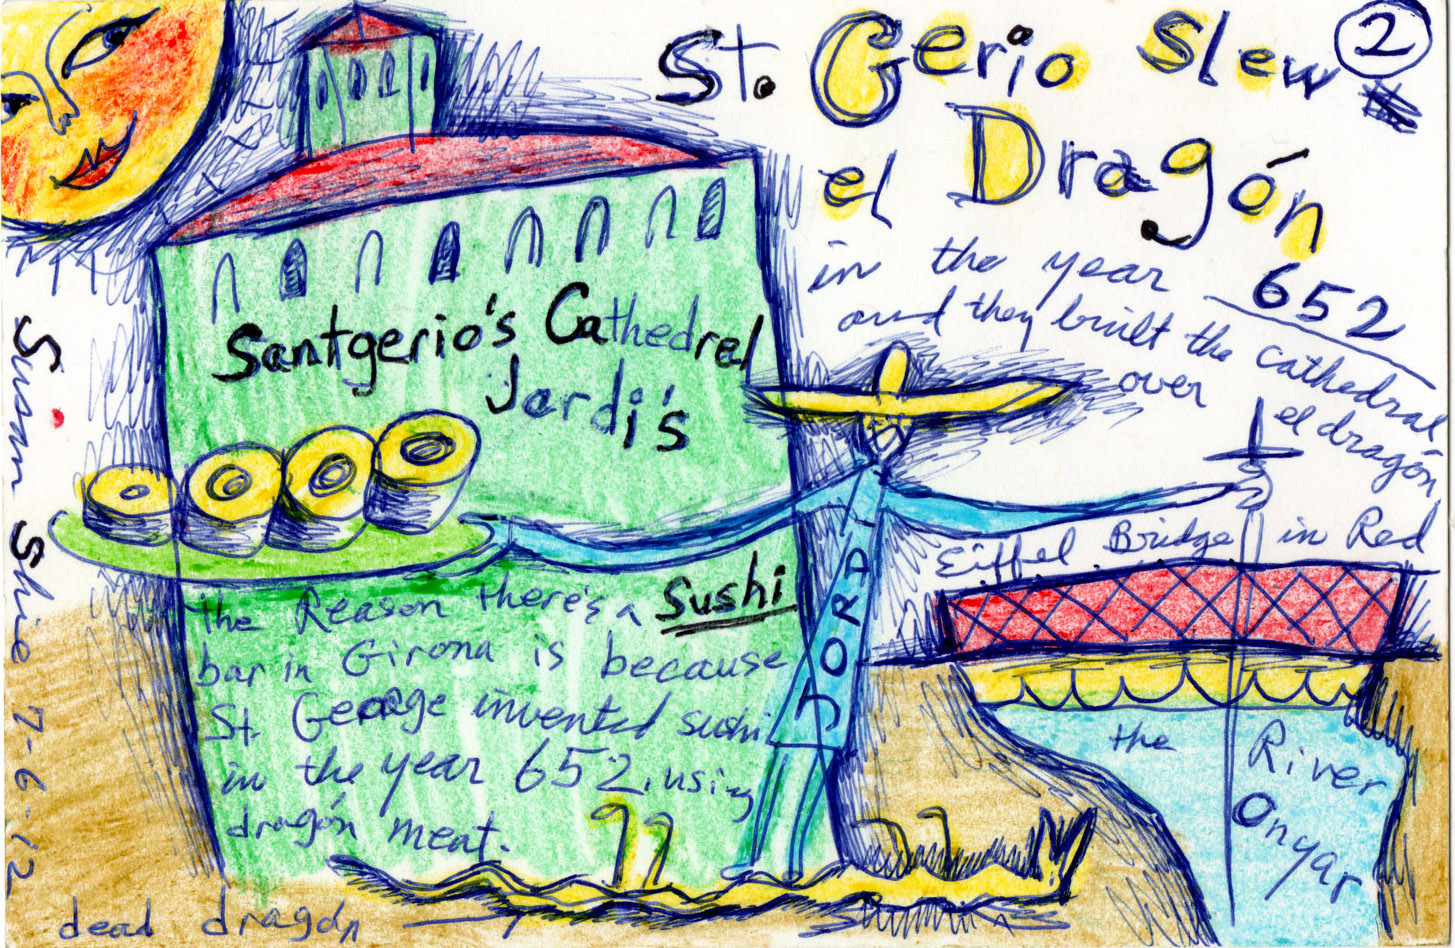 St. Gerio Slew
2
el Dragón
in the year 652
and they built the cathedral
over el dragón
Santgerio's Cathedrel
Jordi's
Eiffel Bridge in Red
JORDI
the Reason there's a Sushi
bar in Girona is because
St. George invented sushi
in the year 652, using
dragón meat.
the River
Onyar
dead dragón
Susun Shie 7-6-12